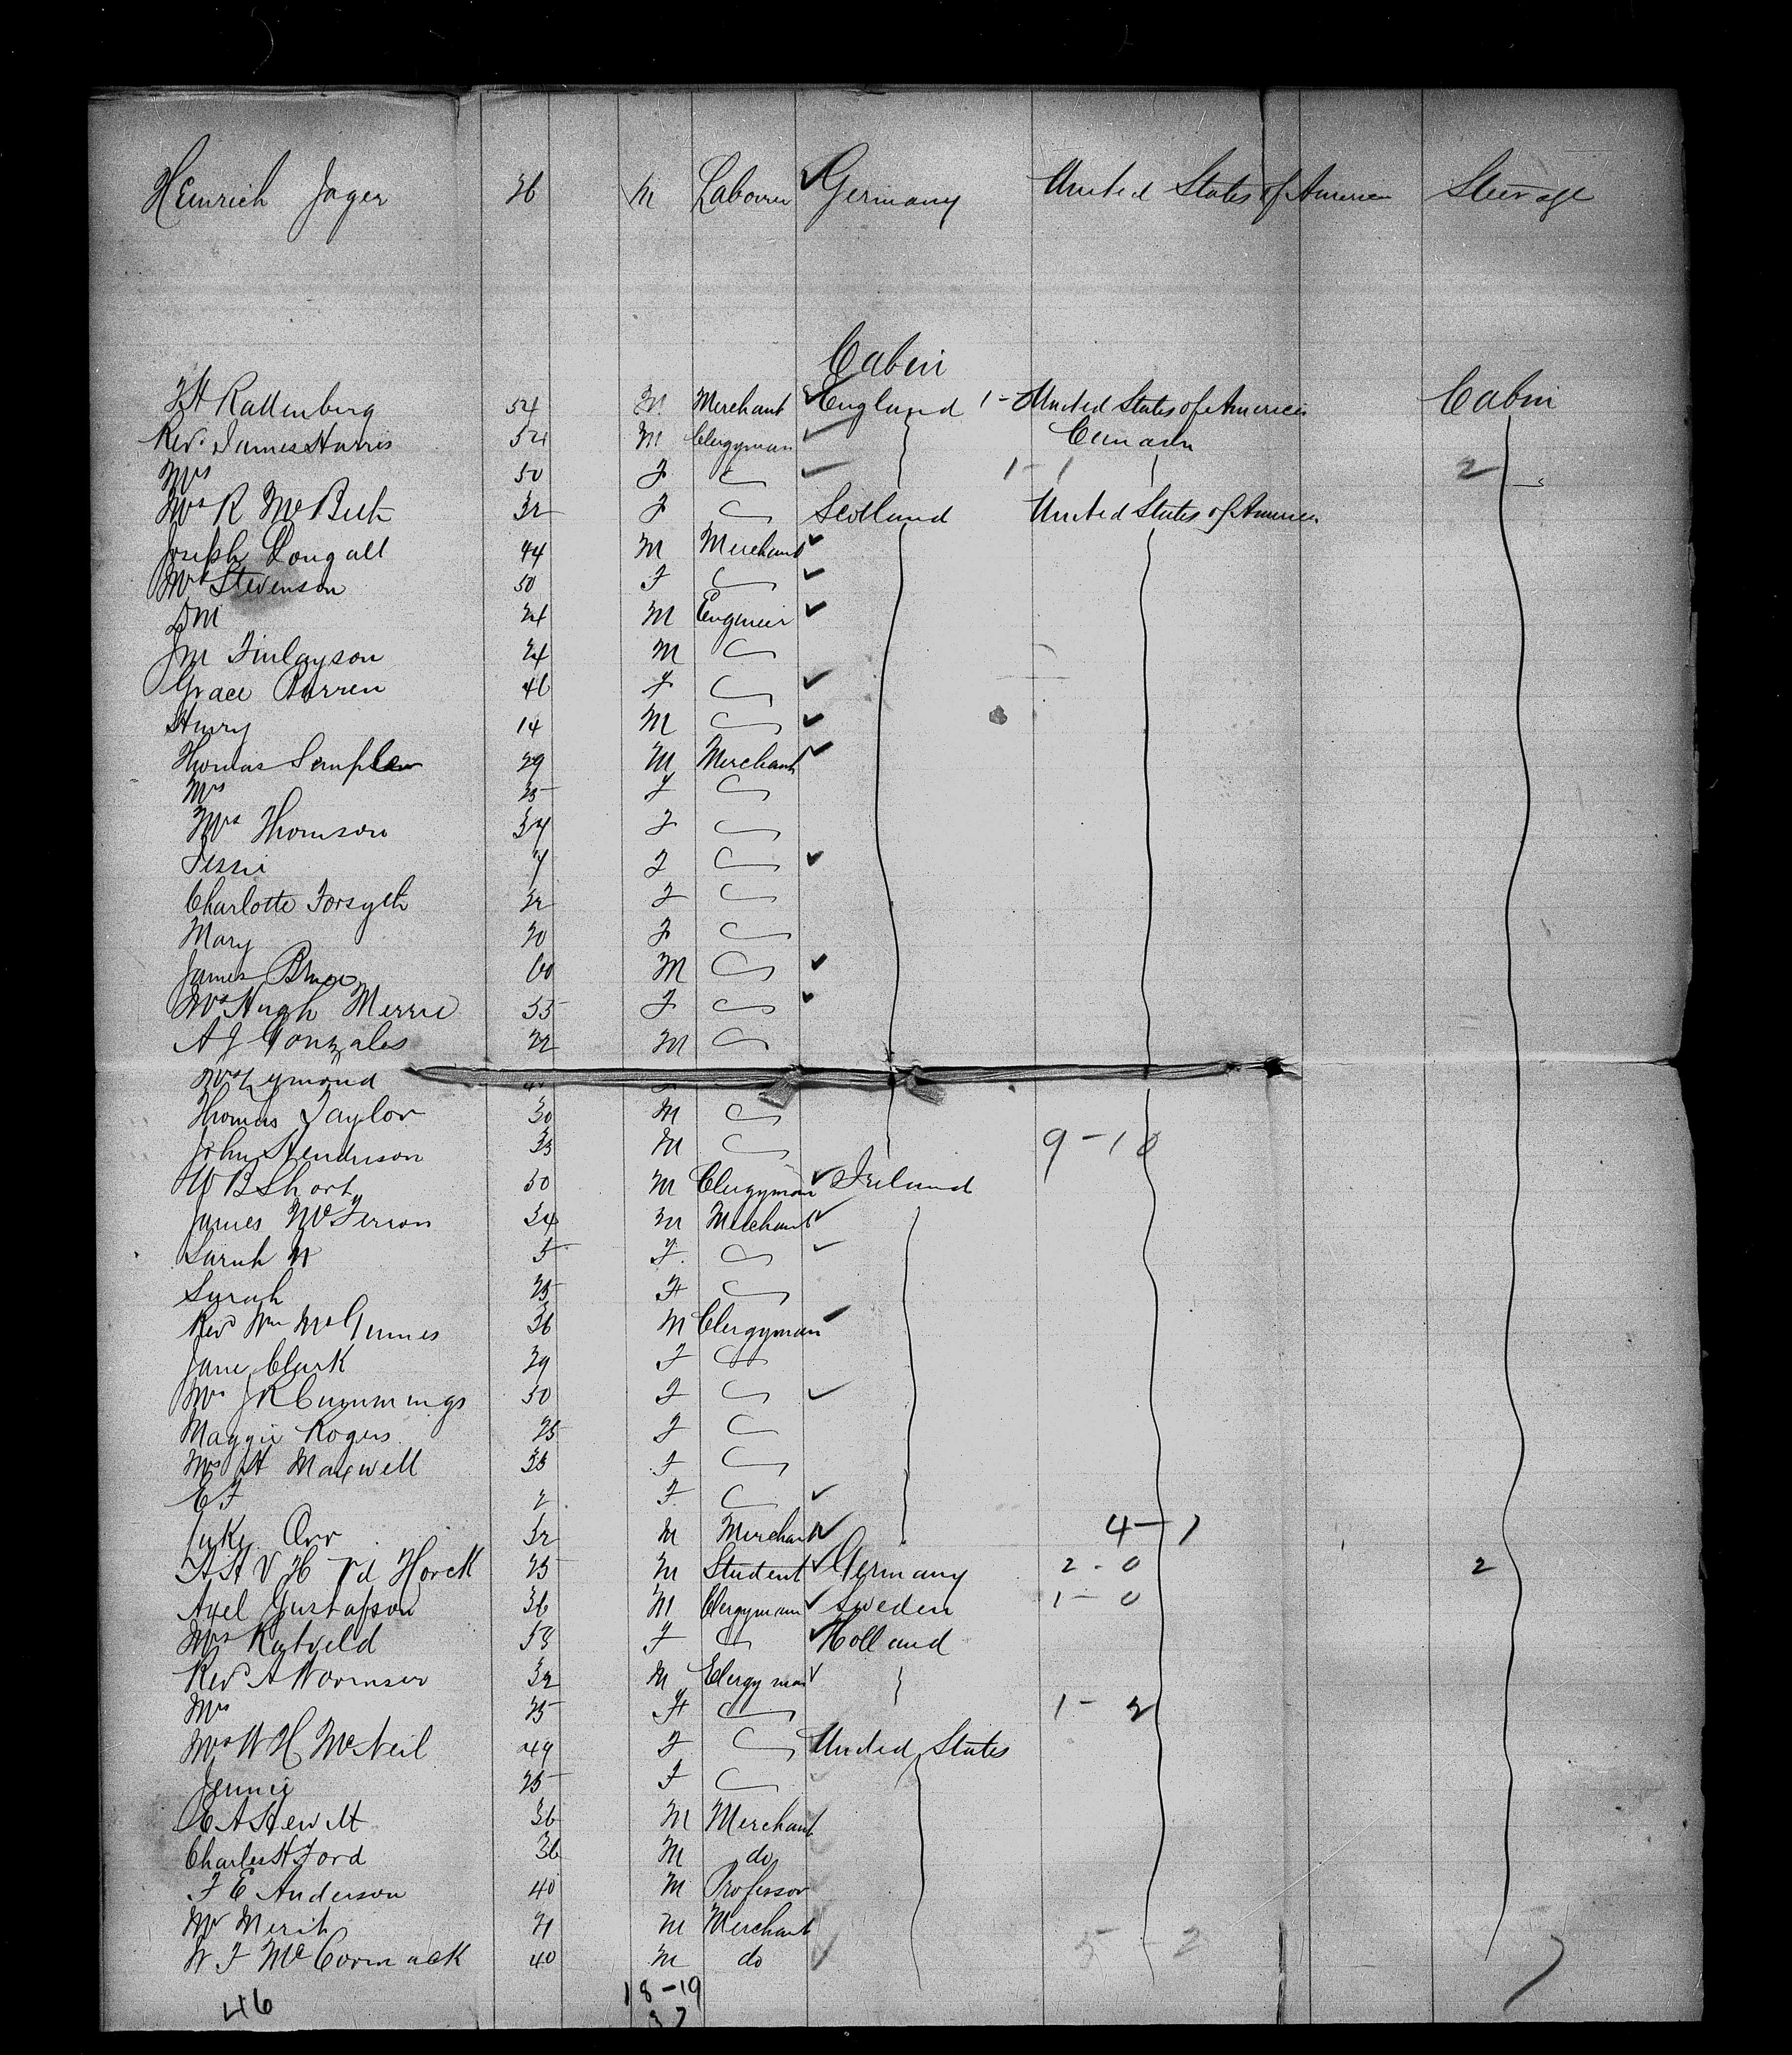 Heinrich Jager 26 M Labourer Germany United States of America Steerage
Cabin
Rattenberg 54 M Merchant England 1- United States of America Cabin
Rev. James Harris 54 M Clergyman Canada
Mrs 50 F 1-1 2
Mrs R McBeth 32 F Scotland United States of America
Joseph Dougall 44 M Merchant
Mrs Stevenson 50 F
24 M Engineer
JM Finlayson 24 M
Grace Barren 46 F
Harry 14 M
Thomas 29 M Merchant
Mrs 25 F
Mrs Thomson 34 F
Jessie 7 F
Charlotte Forsyth 32 F
Mary 20 F
James 60 M
Mrs Hugh Merrie 55 F
A J Gonzales 22 M
Mrs Lymond
Thomas Taylor 30 M
John Henderson 33 M 9-10
W B Short 50 M Clergyman Ireland
James McFerson 34 M Merchant
Sarah M 5 F
Sarah 25 F
Rev Wm McGinnes 36 M Clergyman
Jane Clark 29 F
Mrs J R Cummings 50 F
Maggie Rogers 25 F
Mrs H Maxwell 33 F
E F 2 F
Orr 32 M Merchant 4-1
A H V H v d Horck 25 M Student Germany 2-0 2
Axel Gustafson 36 M Clergyman Sweden 1-0
Mrs 53 F Holland
Rev A Wormser 32 M Clergyman
Mrs 25 F 1-2
Mrs W H McNeil 49 F United States
Jennie 25 F
E A Hewitt 36 M Merchant
Charles H Ford 36 M do
F E Anderson 40 M Professor
Mr Merit 21 M Merchant
W F McCormack 40 M do 5-2 7
46 18-19
37